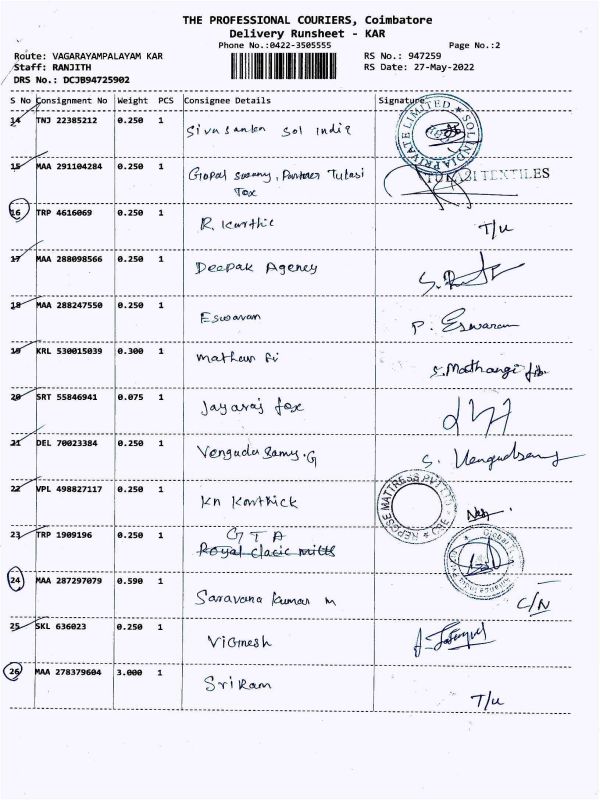 THE PROFESSIONAL COURIERS, Coimbatore
Delivery Runsheet - KAR
Phone No.:0422-3505555
Page No.:2
Route: VAGARAYAMPALAYAM KAR
RS No.: 947259
Staff: RANJITH
RS Date: 27-May-2022
DRS No.: DCJB94725902
S No Consignment No Weight PCS Consignee Details Signature
14 TNJ 22385212 0.250 1 Sivasankar Sol India
SOL INDIA PRIVATE LIMITED
15 MAA 291104284 0.250 1 Gopal Swamy, Partner Tulasi
Tex
TULASI TEXTILES
16 TRP 4616069 0.250 1 R. Karthic T/U
17 MAA 288098566 0.250 1 Deepak Agency
18 MAA 288247550 0.250 1 Eswaran P. Eswaran
19 KRL 530015039 0.300 1 S. Mathangi
20 SRT 55846941 0.075 1 Jayaraj
21 DEL 70023384 0.250 1 Vengudusamy.G
22 VPL 498827117 0.250 1 KN Karthick
REPOSE MATTRESS PVT LTD CBE
23 TRP 1909196 0.250 1 GTA
Royal Clacic mills
24 MAA 287297079 0.590 1 Saravana Kumar M C/N
25 SKL 636023 0.250 1 Vignesh
26 MAA 278379604 3.000 1 Sri Ram T/U